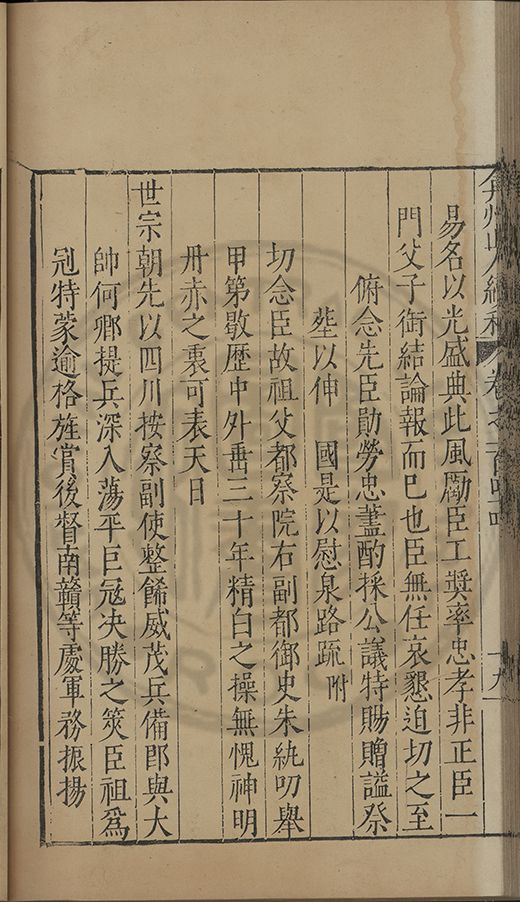 弇州山人續稿 卷之一百四
十九
易名以光盛典此風勵臣工奬率忠孝非正臣一
門父子銜結論報而已也臣無任哀懇迫切之至
俯念先臣勛勞忠藎酌採公議特賜贈謚祭
塟以伸　國是以慰泉路疏附
切念臣故祖父都察院右副都御史朱紈叨舉
甲第敭歷中外垂三十年精白之操無愧神明
丹赤之衷可表天日
世宗朝先以四川按察副使整餙威茂兵備即與大
帥何卿提兵深入蕩平巨寇决勝之筴臣祖爲
冠特蒙逾格旌賞後督南贛等處軍務振揚